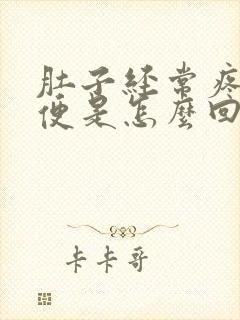 肚子经常疼
便是怎麽回
卡卡哥